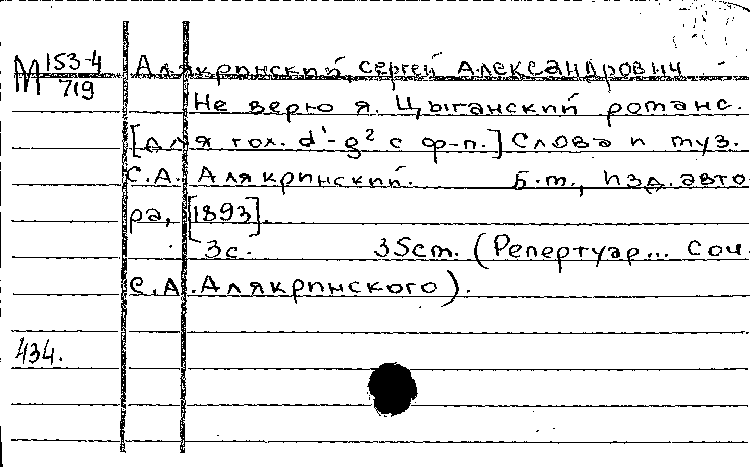 М 153-4/719
Алякринский, Сергей Александрович
Не верю я. Цыганский романс.
[Для гол. d¹-g² с ф-п.] Слова и муз.
С.А. Алякринский. Б.м., изд. авто-
ра, [1893].
3с. 35cm. (Репертуар... Соч.
С.А. Алякринского).
434.